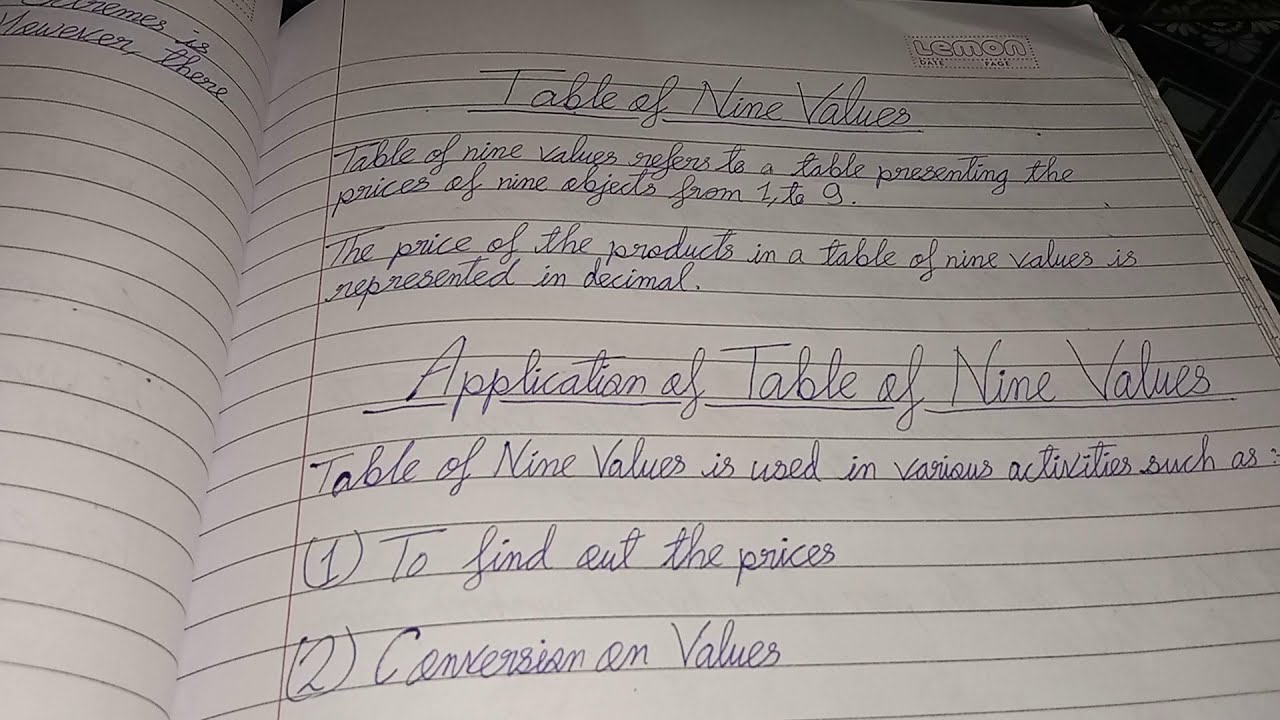 extremes is
However, there
Lemon
DATE PAGE
Table of Nine Values
Table of nine values refers to a table presenting the
prices of nine objects from 1, to 9.
The price of the products in a table of nine values is
represented in decimal.
Application of Table of Nine Values
Table of Nine Values is used in various activities such as :-
(1) To find out the prices
(2) Conversion on Values